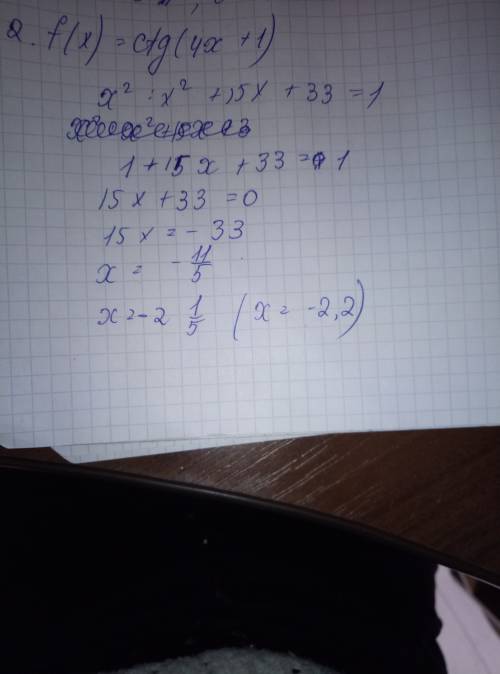 2. f(x) = ctg(4x + 1)
x² : x² + 15x + 33 = 1
1 + 15x + 33 = 1
15x + 33 = 0
15x = - 33
x = - 11/5
x = - 2 1/5 (x = -2,2)